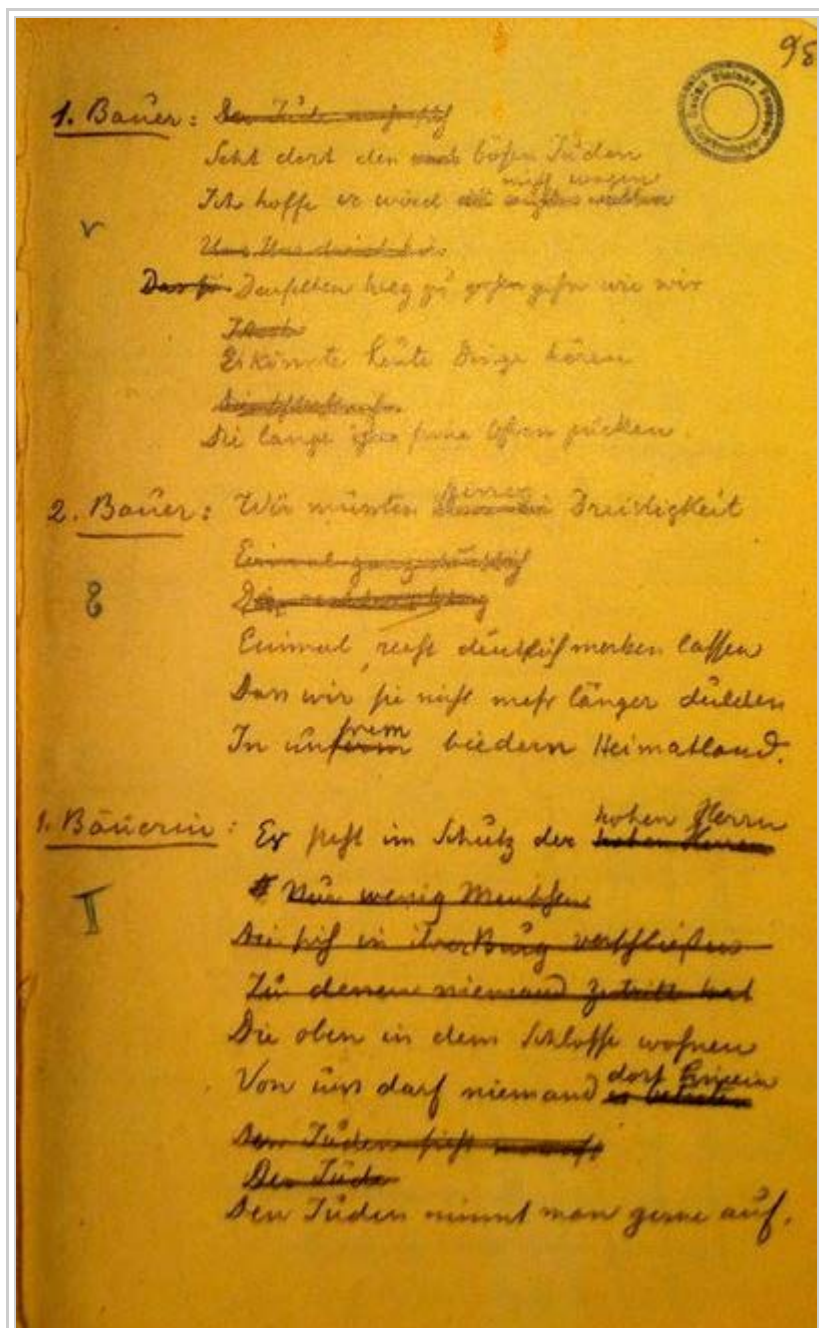 98
Rudolf Steiner
1. Bauer: Der Jude
Seht dort den bösen Juden
nicht wagen
Ich hoffe er wird
Denselben Weg zu gehn wie wir
Er könnte heute Dinge hören
Die lange ihm seine Ohren jücken.
2. Bauer: Wir müssten seiner Dreistigkeit
Einmal ganz deutlich
Einmal recht deutlich merken lassen
Dass wir sie nicht mehr länger dulden
In unserm srem biedern Heimatland.
1. Bäuerin: Er steht im Schutz der hohen Herren hohen Herrn
Nur wenig Menschen
Die sich in ihrer Burg verschließen
Zu denen niemand Zutritt hat
Die oben in dem Schlosse wohnen
Von uns darf niemand dort hinein
Den Juden
Der Jude
Den Juden nimmt man gerne auf.